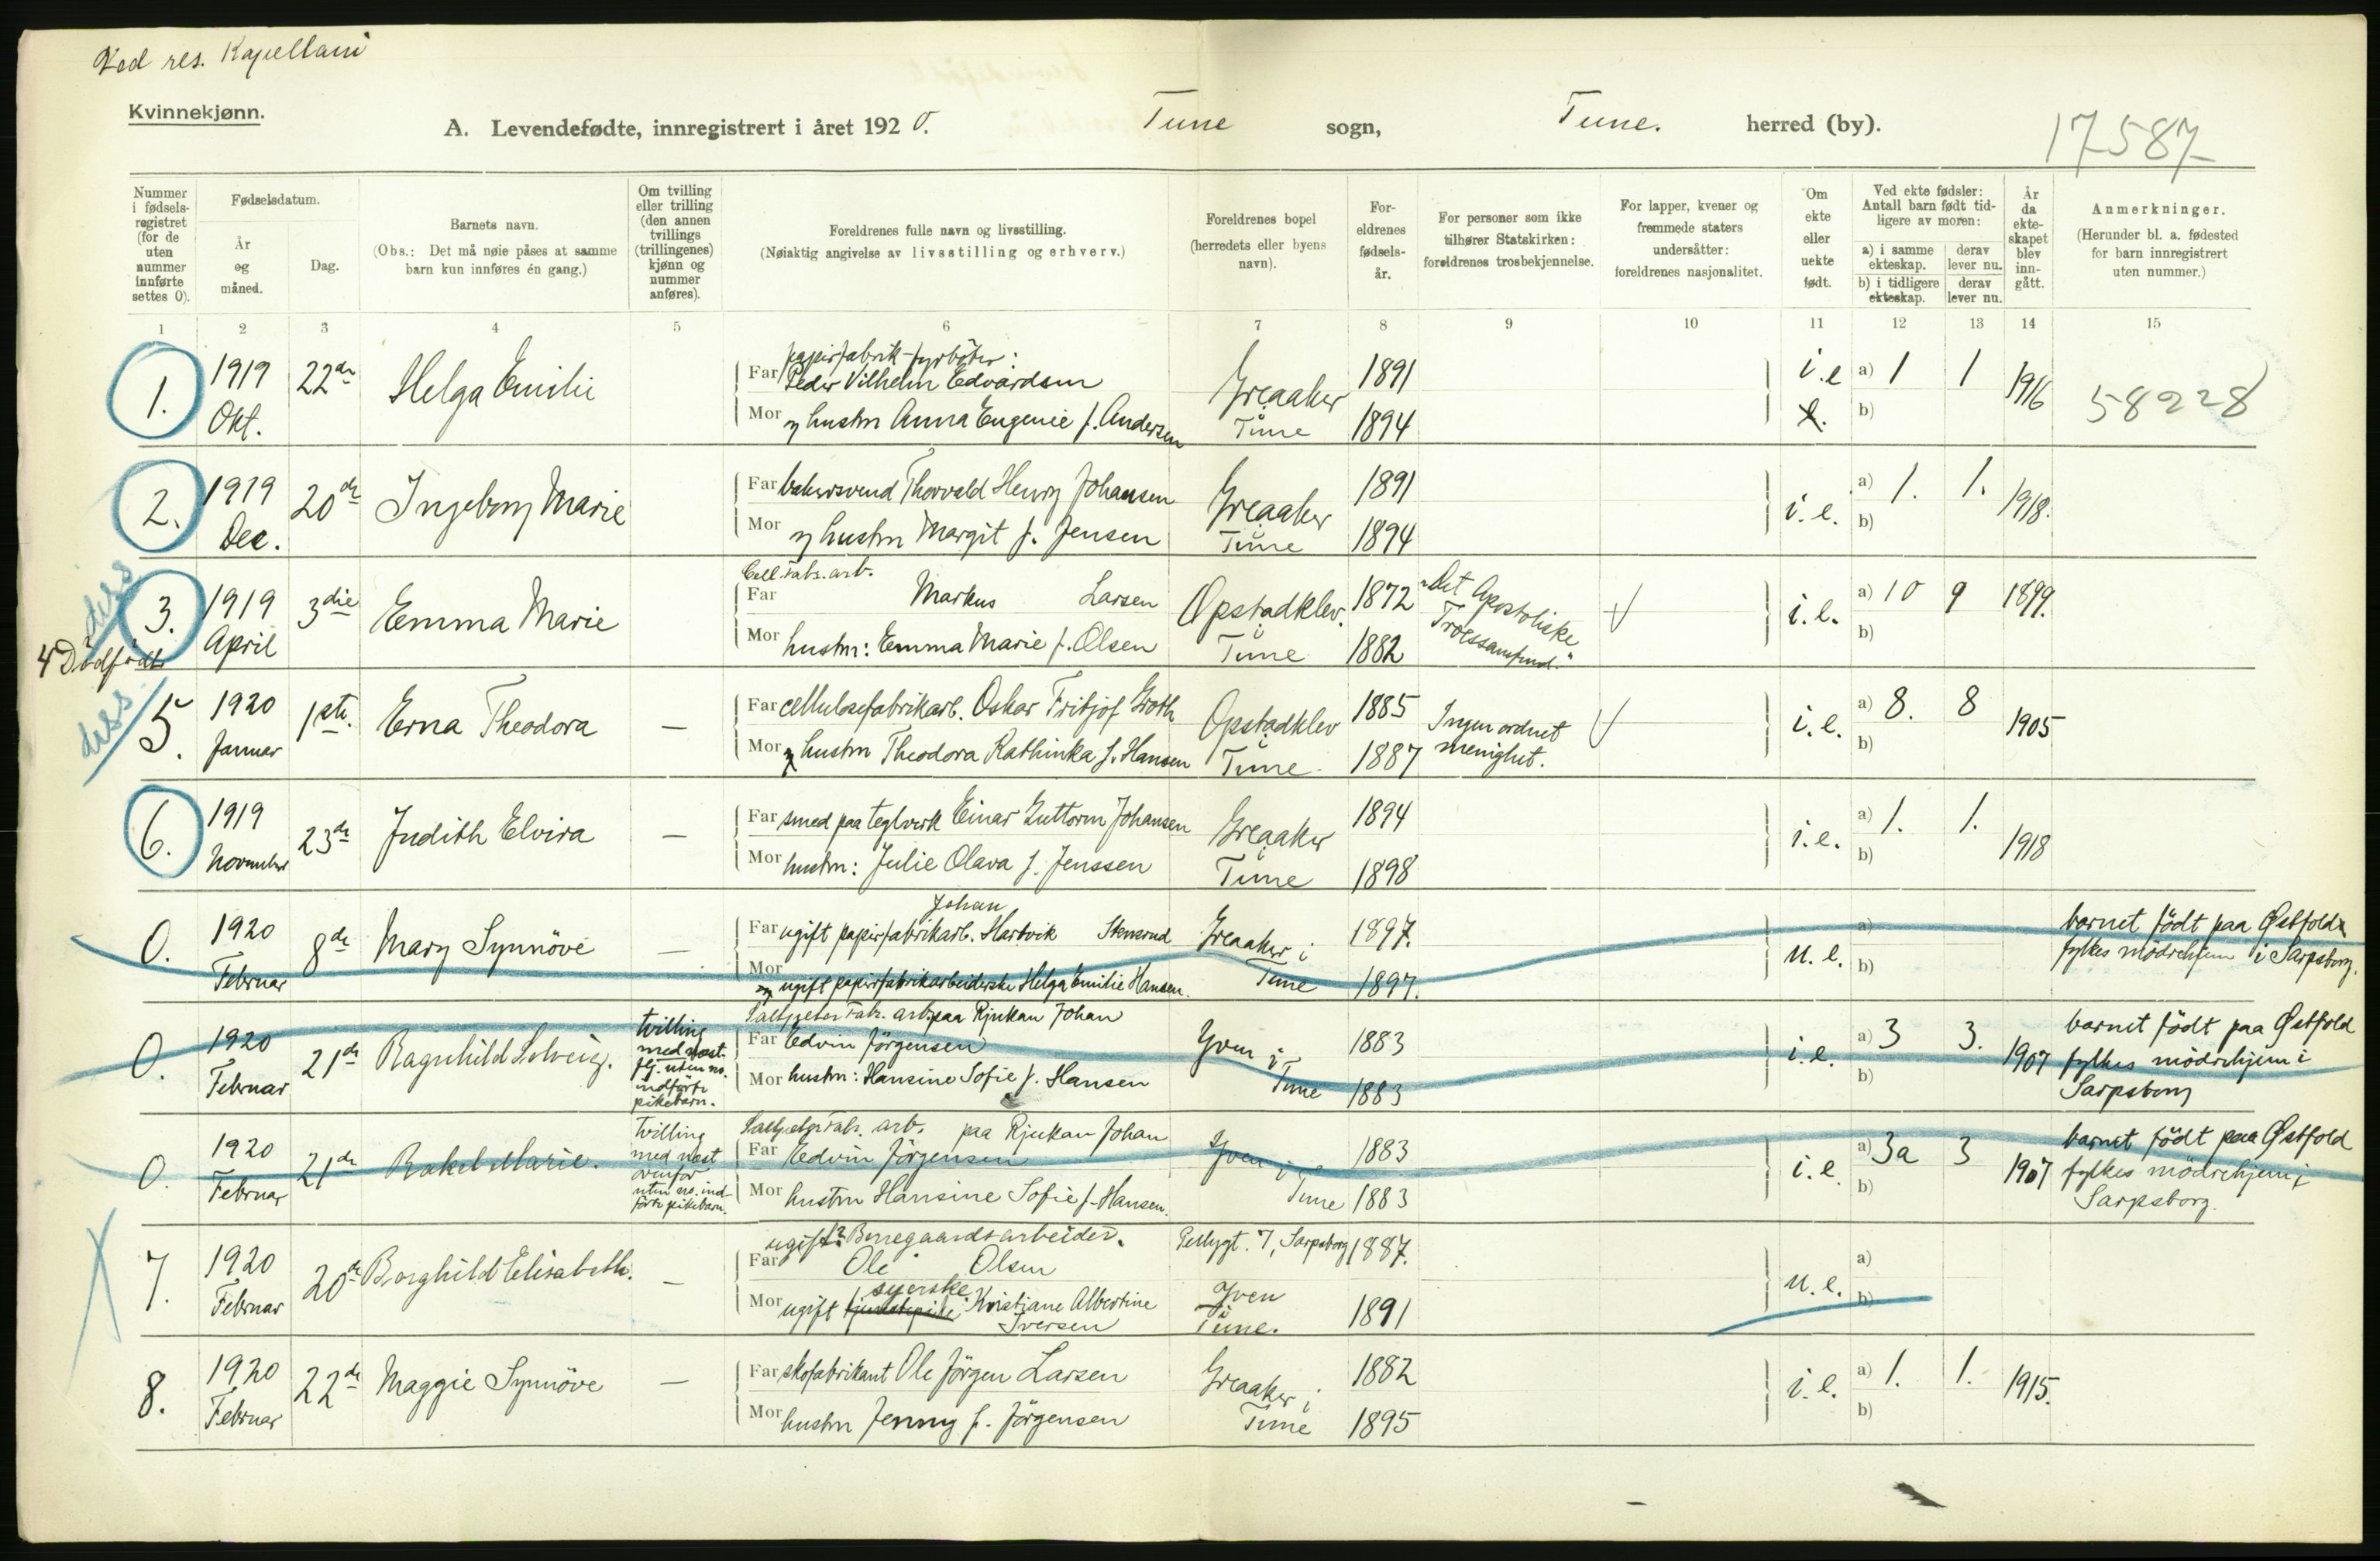 Ved res. Kapellani
Kvinnekjønn.
A. Levendefødte, innregistrert i året 1920. Tune sogn, Tune. herred (by).
17587
Nummer i fødselsregistret (for de uten nummer innførte settes 0).
Fødselsdatum.
År og måned.
Dag.
Barnets navn.
(Obs.: Det må nøie påses at samme barn kun innføres én gang.)
Om tvilling eller trilling (den annen tvillings (trillingenes) kjønn og nummer anføres).
Foreldrenes fulle navn og livsstilling.
(Nøiaktig angivelse av livsstilling og erhverv.)
Foreldrenes bopel (herredets eller byens navn).
Foreldrenes fødselsår.
For personer som ikke tilhører Statskirken: foreldrenes trosbekjennelse.
For lapper, kvener og fremmede staters undersåtter: foreldrenes nasjonalitet.
Om ekte eller uekte født.
Ved ekte fødsler: Antall barn født tidligere av moren:
a) i samme ekteskap. derav lever nu.
b) i tidligere ekteskap. derav lever nu.
År da ekteskapet blev inngått.
Anmerkninger.
(Herunder bl. a. fødested for barn innregistrert uten nummer.)
1 2 3 4 5 6 7 8 9 10 11 12 13 14 15
1. 1919 Okt. 22de Helga Emilie
papirfabrik-fyrbøter:
Far Peder Vilhelm Edvardsen Greaaker 1891 i.e a) 1 1 1916 58228
Mor og hustru Anna Eugenie f. Andersen i Tune 1894 b)
2. 1919 Dec. 20de Ingeborg Marie
Far bakersvend Thorvald Henry Johansen Greaaker 1891 i.e. a) 1. 1. 1918.
Mor og hustru Margit f. Jensen i Tune 1894 b)
dis
3. 1919 April 3die Emma Marie
Cell.fabr.arb.
Far Markus Larsen Opstadklev. 1872 "Det Apostoliske Troessamfund." i.e. a) 10 9 1899.
Mor hustru: Emma Marie f. Olsen i Tune 1882 b)
4 Dødfødt
diss.
5. 1920 Januar 1ste. Erna Theodora —
Far cellulosefabrikarb. Oskar Fritjof Groth Opstadklev 1885 Ingen ordnet menighet. i.e. a) 8. 8 1905
Mor og hustru Theodora Kathinka f. Hansen i Tune 1887 b)
6. 1919 November 23de Judith Elvira —
Far smed paa teglverk Einar Guttorm Johansen Greaaker 1894 i.e. a) 1. 1. 1918
Mor hustru: Julie Olava f. Jenssen i Tune 1898 b)
0. 1920 Februar 8de Mary Synnöve —
Johan
Far ugift papirfabrikarb. Hartvik Stensrud Greaaker i 1897. u.e. a) barnet födt paa Østfold fylkes mödrehjem i Sarpsborg.
Mor og ugift papirfabrikarbeiderske Helga Emilie Hansen. Tune 1897. b)
0. 1920 Februar 21de Ragnhild Solveig. tvilling med næst flg. uten no. indförte pikebarn.
Salpeter fabr. arb. paa Rjukan Johan
Far Edvin Jörgensen Yven i 1883 i.e. a) 3 3. 1907 barnet födt paa Østfold fylkes mödrehjem i Sarpsborg
Mor hustru: Hansine Sofie f. Hansen Tune 1883 b)
0. 1920 Februar 21de Rakel Marie. Tvilling med næst ovenfor uten no. indförte pikebarn.
Salpeter fabr. arb. paa Rjukan Johan
Far Edvin Jörgensen Yven i 1883 i.e. a) 3a 3 1907 barnet födt paa Østfold fylkes mödrehjem i Sarpsborg.
Mor hustru Hansine Sofie f. Hansen. Tune 1883 b)
7. 1920 Februar 20de Borghild Elisabeth. —
ugift? Borregaardsarbeider. 7, Sarpsborg 1887.
Far Ole Olsen u.e. a)
syerske
Mor ugift tjenestepike Kristiane Albertine Iversen Yven i Tune. 1891 b)
8. 1920 Februar 22de Maggie Synnöve —
Far skofabrikant Ole Jörgen Larsen Greaaker i 1882 i.e. a) 1. 1. 1915.
Mor hustru Jenny f. Jörgensen Tune 1895 b)